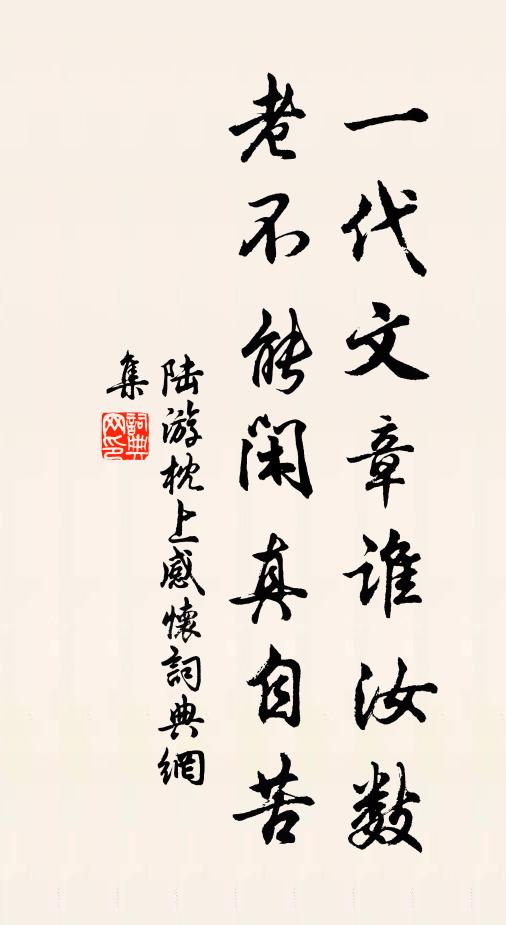 一代文章谁汝數
老不能閑真自苦
陆游枕上感懷詞典網
集
詞典網印